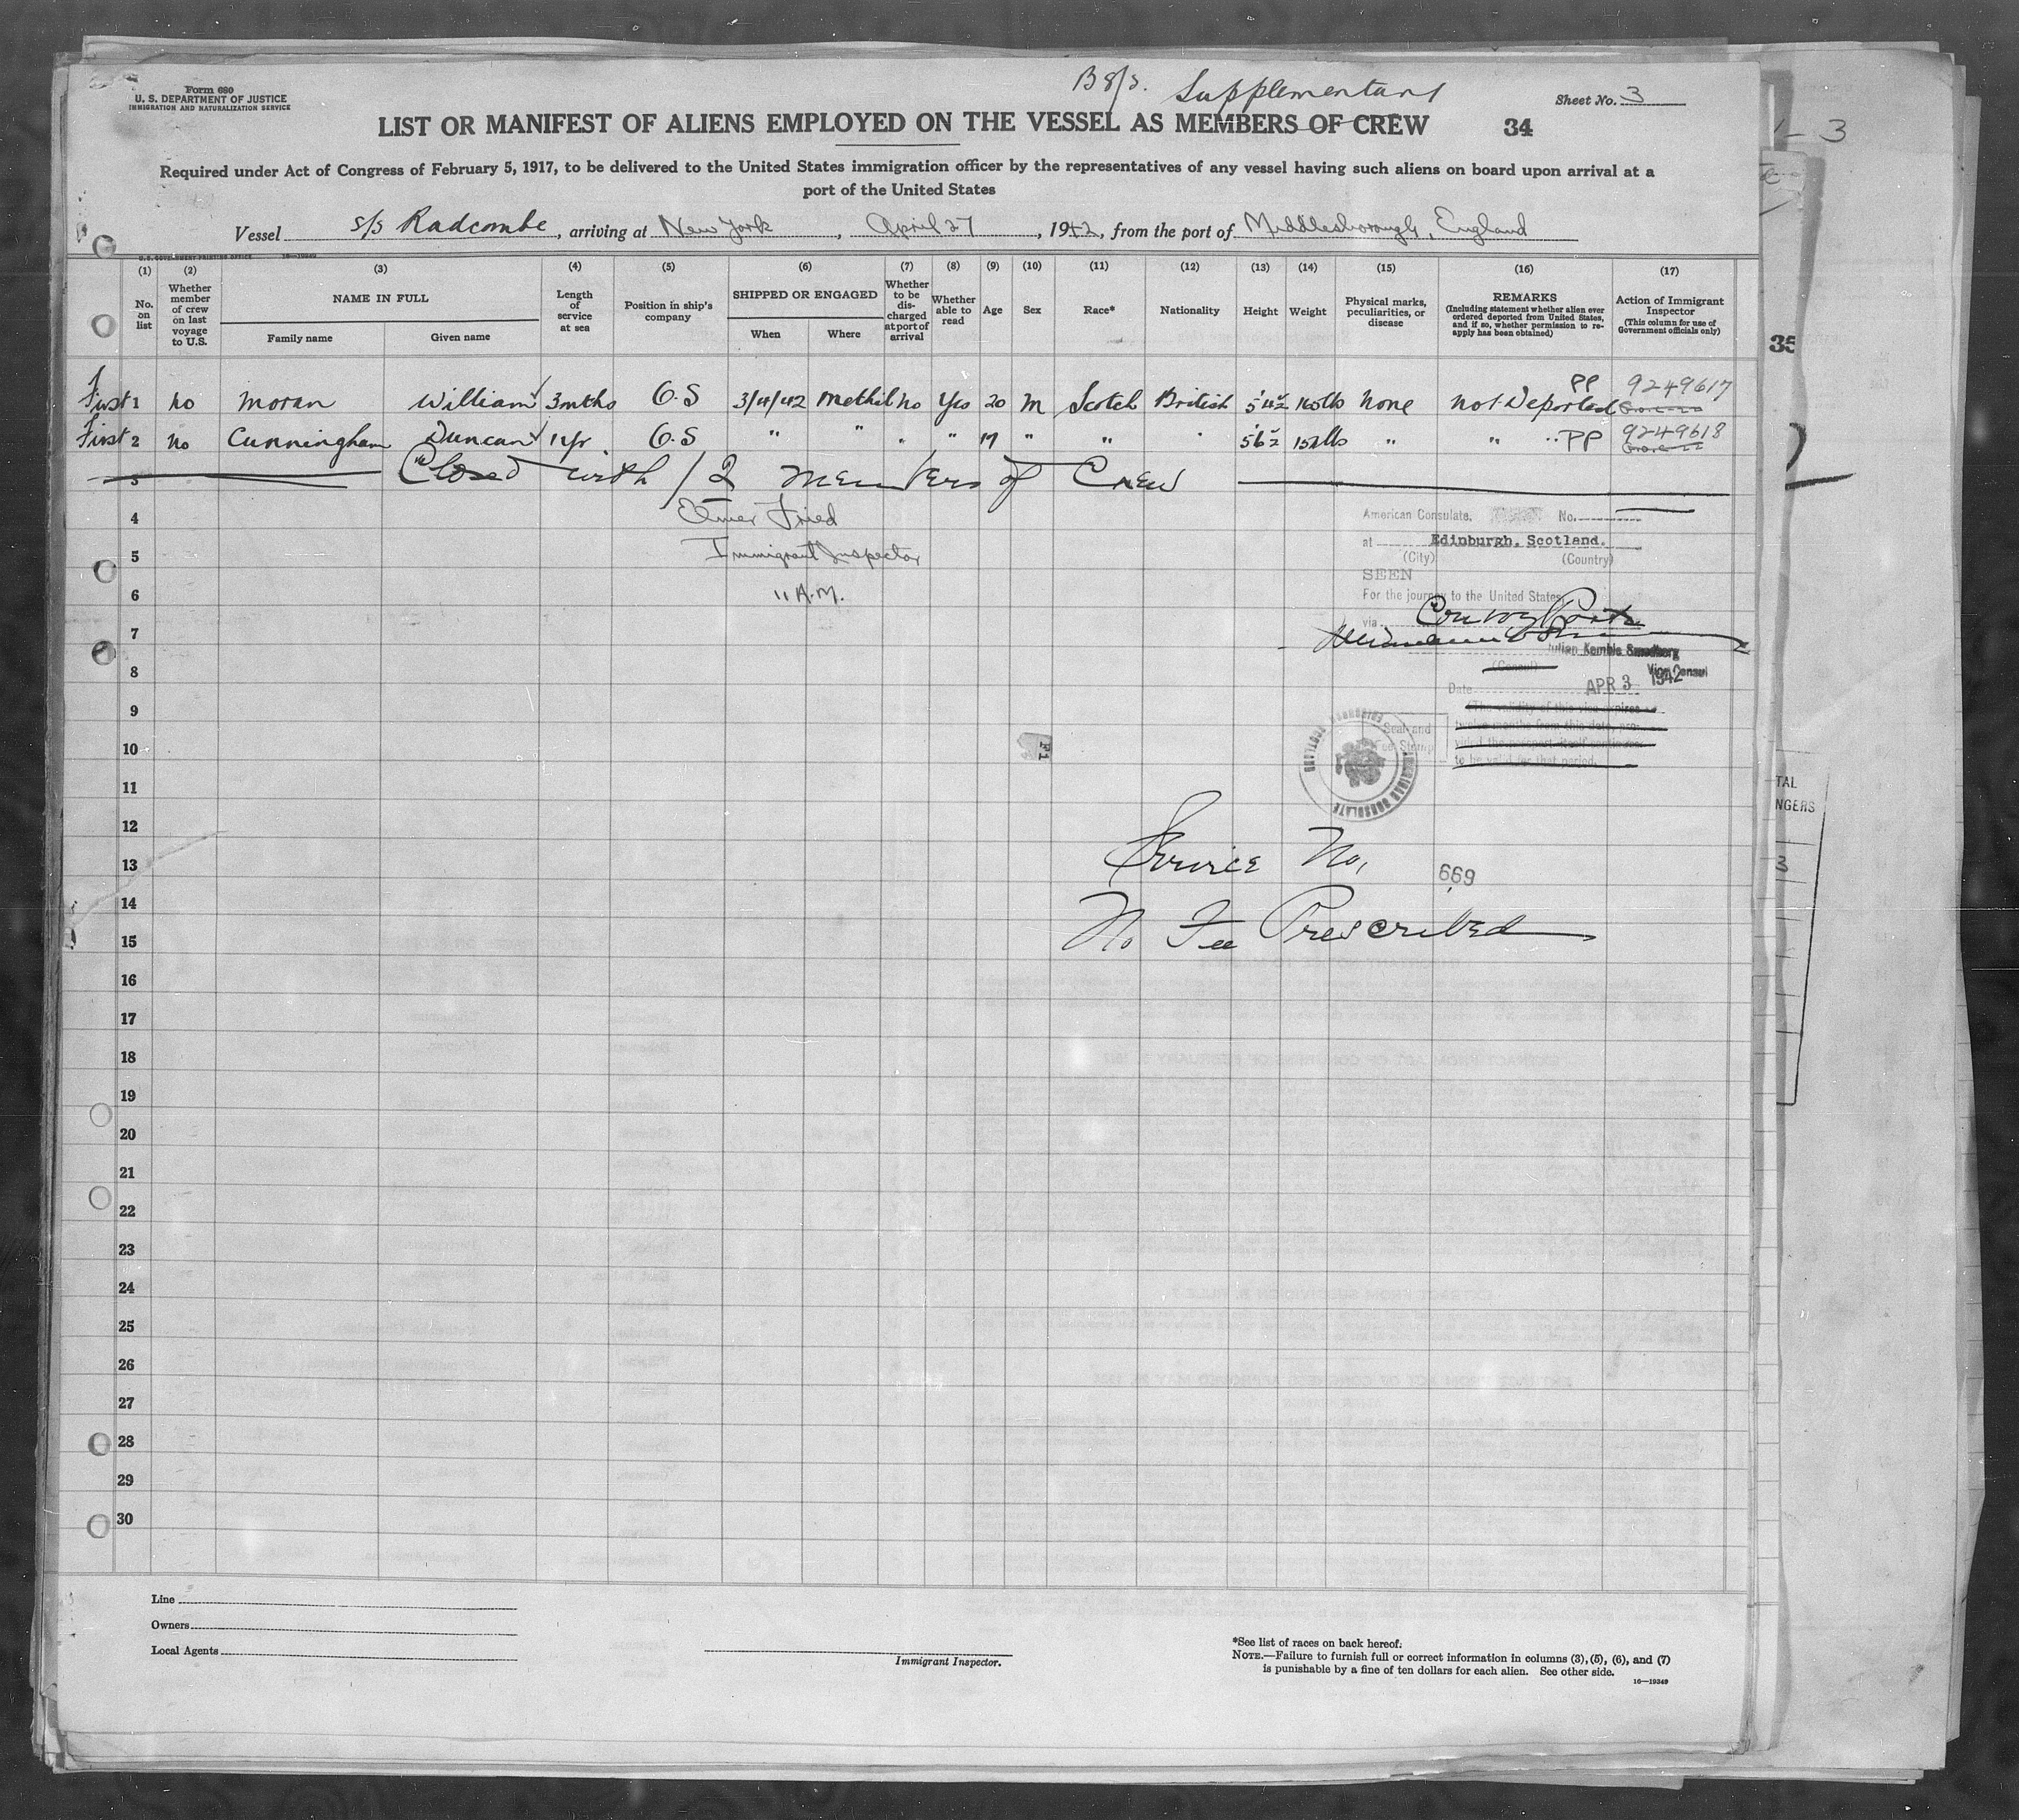 Form 680
U. S. DEPARTMENT OF JUSTICE
IMMIGRATION AND NATURALIZATION SERVICE
Supplementary
Sheet No. 3
LIST OR MANIFEST OF ALIENS EMPLOYED ON THE VESSEL AS MEMBERS OF CREW 34
Required under Act of Congress of February 5, 1917, to be delivered to the United States immigration officer by the representatives of any vessel having such aliens on board upon arrival at a
port of the United States
Vessel s/s Radcombe, arriving at New York, April 27, 1942, from the port of Middlesborough, England
U. S. GOVERNMENT PRINTING OFFICE 16—19349
(1) (2) (3) (4) (5) (6) (7) (8) (9) (10) (11) (12) (13) (14) (15) (16) (17)
No. on list
Whether member of crew on last voyage to U.S.
NAME IN FULL
Family name
Given name
Length of service at sea
Position in ship's company
SHIPPED OR ENGAGED
When
Where
Whether to be discharged at port of arrival
Whether able to read
Age
Sex
Race*
Nationality
Height
Weight
Physical marks, peculiarities, or disease
REMARKS
(Including statement whether alien ever ordered deported from United States, and if so, whether permission to reapply has been obtained)
Action of Immigrant Inspector
(This column for use of Government officials only)
First 1 no Moran William 3 mths O.S 3/4/42 Methil no Yes 20 M Scotch British 5'4½ 160lb None not Deported PP 9249617
First 2 no Cunningham Duncan 1 yr O.S " " " " 17 " " " 5'6½ 152lb " " " PP 9249618
3 Closed with /2 Members of Crew
4 Elmer Fried
5 Immigrant Inspector
6 11 A.M.
7
8
9
10
11
12
13
14
15
16
17
18
19
20
21
22
23
24
25
26
27
28
29
30
American Consulate, No.
at Edinburgh, Scotland.
(City) (Country)
SEEN
For the journey to the United States
via Convoy Ports
Julian Kemble Smedberg
(Consul) Vice Consul
Date APR 3 1942
(The validity of this visa expires
twelve months from this date, pro-
vided the passport itself continues
to be valid for that period.
Seal and
Fee Stamp
AMERICAN CONSULATE
EDINBURGH SCOTLAND
Service No. 669
No Fee Prescribed
Line
Owners
Local Agents
Immigrant Inspector.
*See list of races on back hereof.
NOTE.—Failure to furnish full or correct information in columns (3), (5), (6), and (7)
is punishable by a fine of ten dollars for each alien. See other side.
16—19349
3
35
TAL
NGERS
3